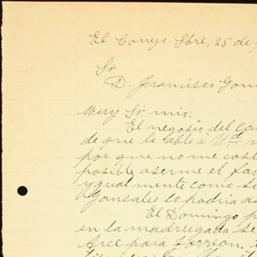 El Conejo Sbre, 25 de
Sr.
D. Francisco Gon
Muy Sr. mio:
El negosio del Ga
de que le able a U
por que no me cost
posible aserme el fav
y qual mente como se
Gonsales lo podria a
El Domingo p
en la madrugada se
Arce para Torreon.